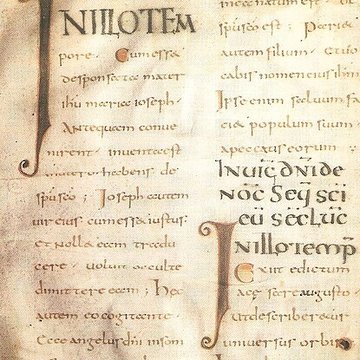 INILLOTEM
pore. Cum essea
desponsata mater
ihu maria ioseph.
Antequam conue
nirent. inuenta est
in utero habens de
spu sco; Ioseph autem
uir eius cum essa iustus.
et nolla eam tradu
cere. uoluit occulte
dimittere eam; haec
autem eo cogitante.
Ecce angelus dni insom
natum est. de
spu sco est; Pariet
autem filium. et uo
cabis nomen eius ihm
Ipse enim saluum fa
ciet populum suum.
a peccatis eorum;
IN UIG DNI DE
NOC SEQ SCI
EU SEC LUC
IN ILLO TEMP
Exiit edictum
a caesare augusto.
ut describeretur
uniuersus orbis